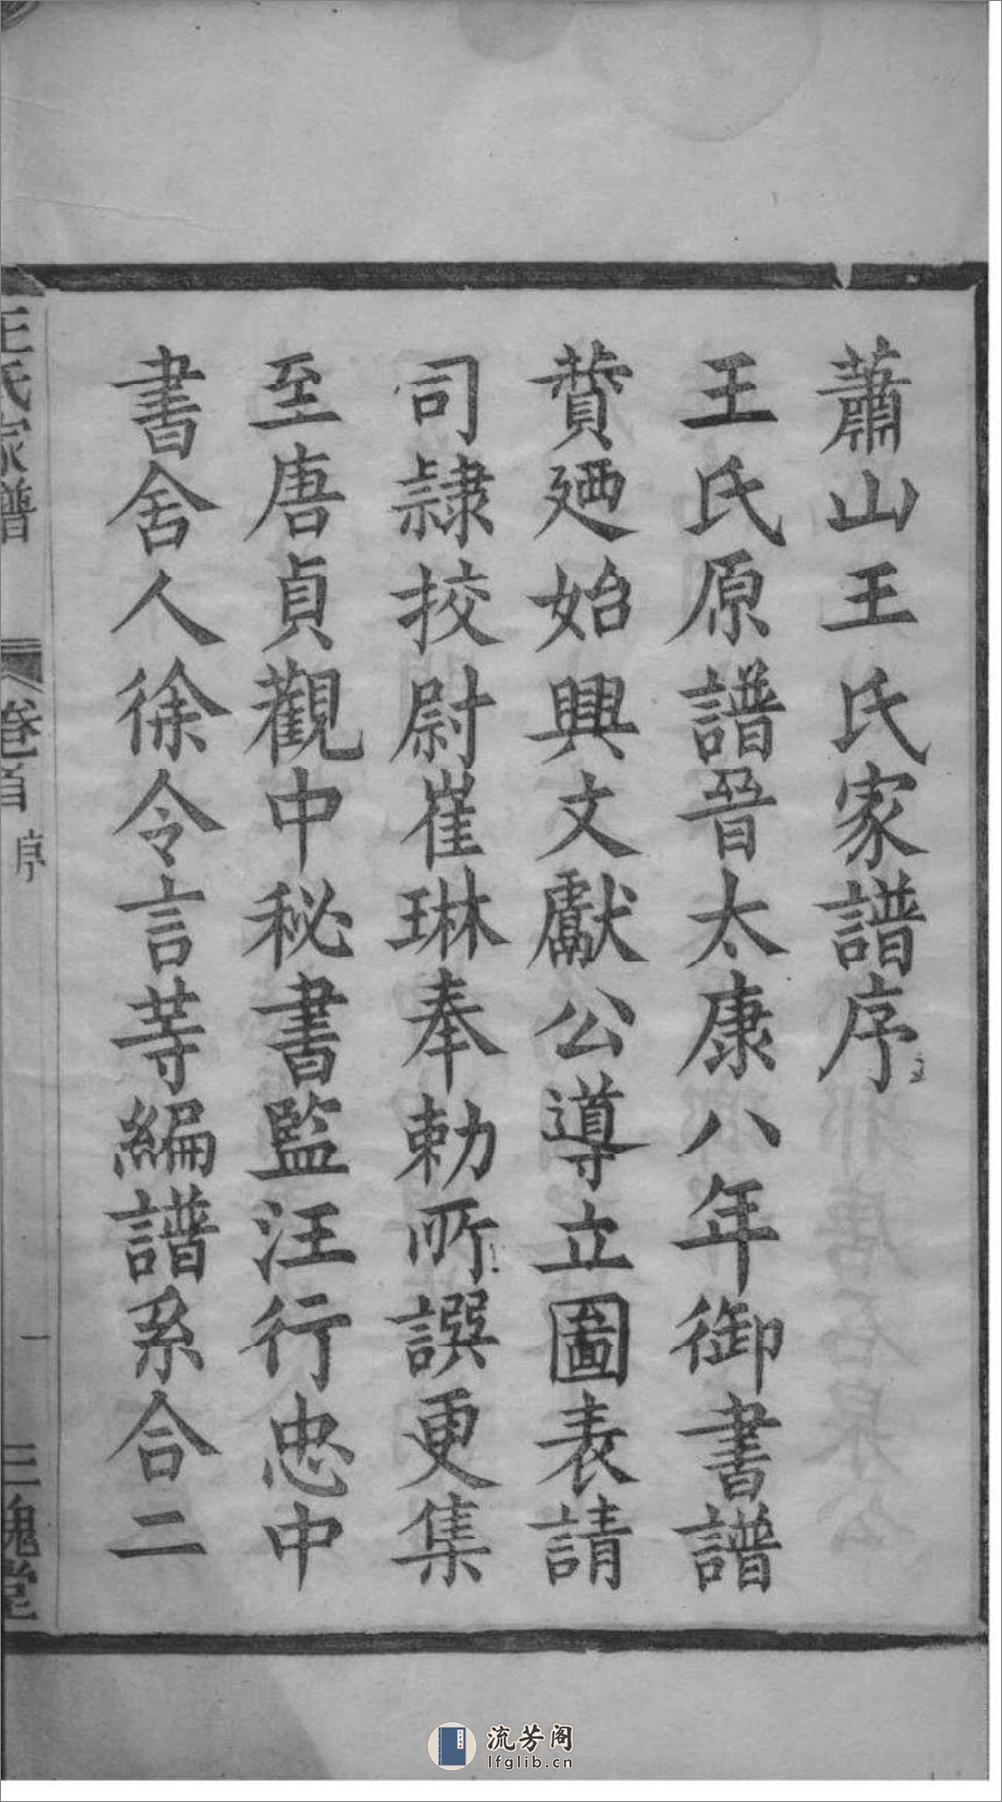 蕭山王氏家譜序
王氏原譜晉太康八年御書譜
賛廼始興文獻公導立圖表請
司隷挍尉崔琳奉勅所譔更集
至唐貞觀中秘書監汪行忠中
書舍人徐令言䓁編譜系合二
王氏家譜
卷首
序
一
三槐堂
流芳阁
lfglib.cn